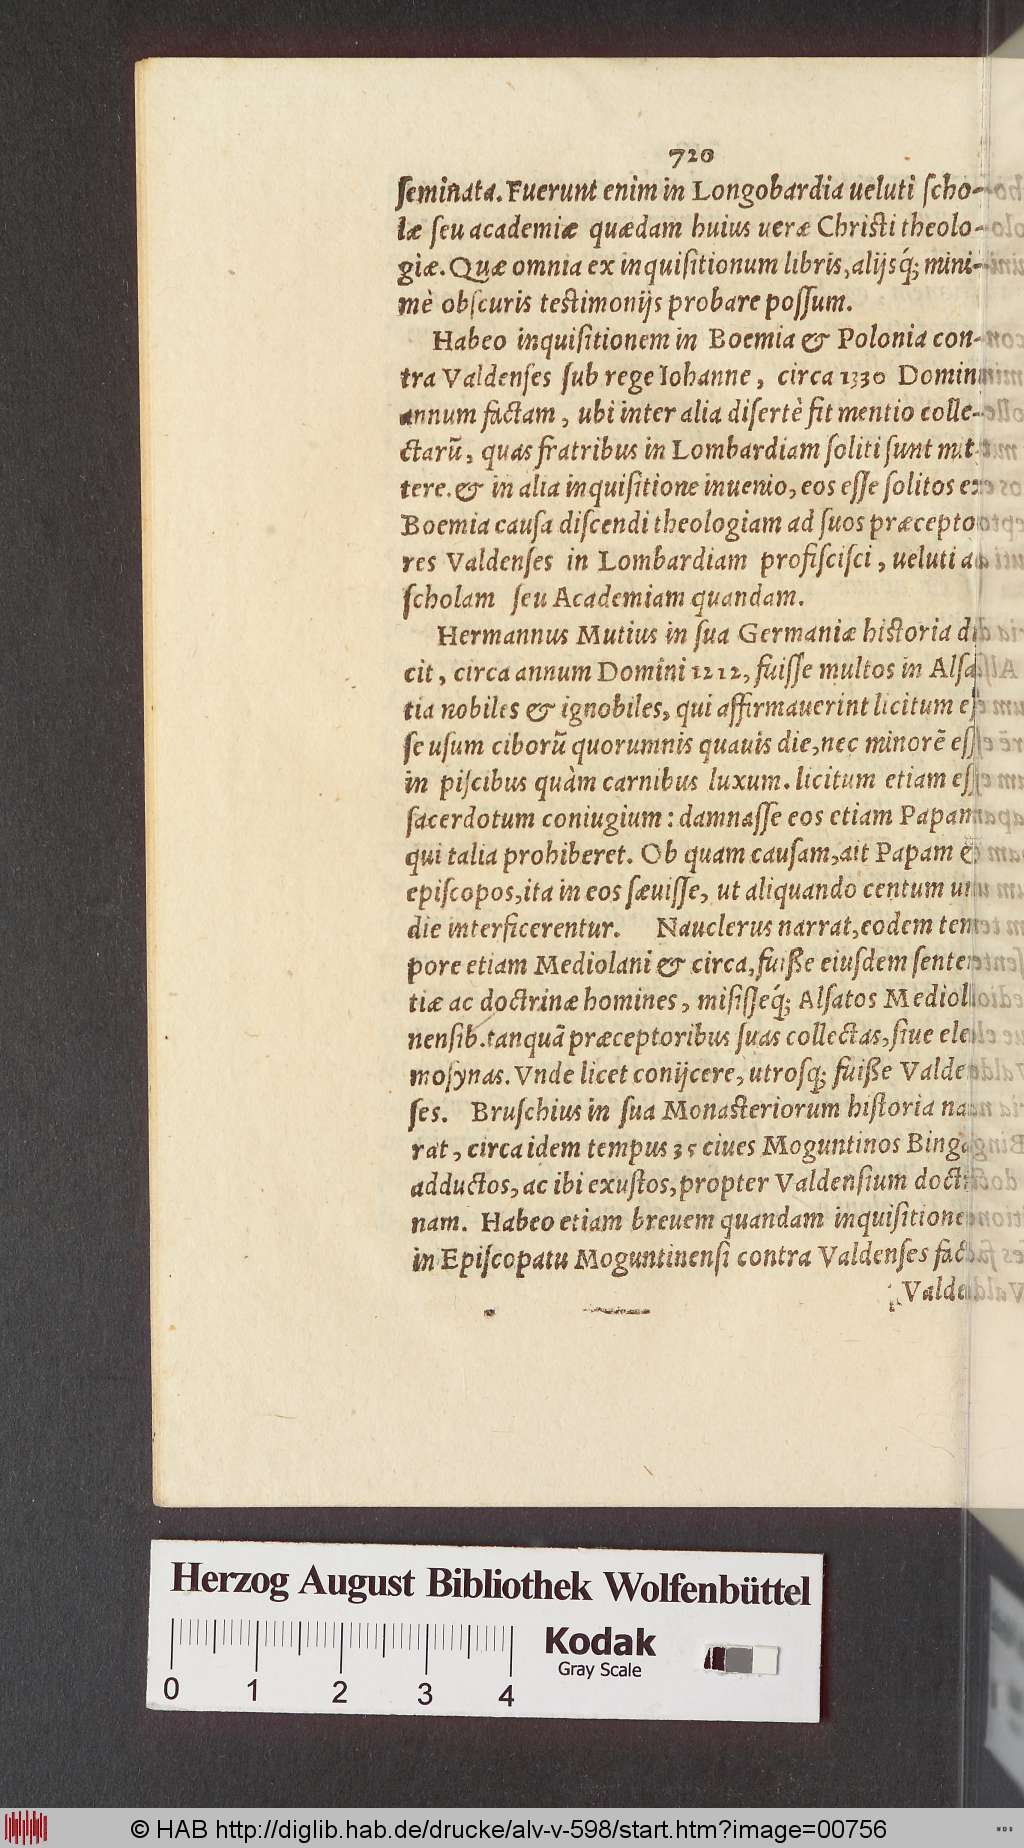 720
ſeminata. Fuerunt enim in Longobardia ueluti ſcho-
læ ſeu academiæ quædam huius ueræ Chriſti theolo-
giæ. Quæ omnia ex inquiſitionum libris, alijsq́; mini-
mè obſcuris teſtimonijs probare poſſum.
Habeo inquiſitionem in Boemia & Polonia con-
tra Valdenſes ſub rege Iohanne, circa 1330 Domini
annum factam, ubi inter alia diſertè fit mentio colle-
ctarũ, quas fratribus in Lombardiam ſoliti ſunt mit-
tere. & in alia inquiſitione inuenio, eos eſſe ſolitos ex
Boemia cauſa diſcendi theologiam ad ſuos præcepto
res Valdenſes in Lombardiam profiſciſci, ueluti ad
ſcholam ſeu Academiam quandam.
Hermannus Mutius in ſua Germaniæ hiſtoria di
cit, circa annum Domini 1212, fuiſſe multos in Alſa
tia nobiles & ignobiles, qui affirmauerint licitum eſ
ſe uſum ciborũ quorumnis quauis die, nec minorẽ eſſe
in piſcibus quàm carnibus luxum. licitum etiam eſſe
ſacerdotum coniugium: damnaſſe eos etiam Papam
qui talia prohiberet. Ob quam cauſam, ait Papam &
epiſcopos, ita in eos ſæuiſſe, ut aliquando centum uno
die interficerentur. Nauclerus narrat, eodem tem
pore etiam Mediolani & circa, fuiße eiuſdem ſenten
tiæ ac doctrinæ homines, miſiſſeq́; Alſatos Mediol
nenſib. tanquã præceptoribus ſuas collectas, ſiue elee
moſynas. Vnde licet conijcere, utroſq; fuiße Valden
ſes. Bruſchius in ſua Monaſteriorum hiſtoria nar
rat, circa idem tempus 35 ciues Moguntinos Bingam
adductos, ac ibi exuſtos, propter Valdenſium doctri
nam. Habeo etiam breuem quandam inquiſitionem
in Epiſcopatu Moguntinenſi contra Valdenſes fact
Valde
Herzog August Bibliothek Wolfenbüttel
Kodak
Gray Scale
0 1 2 3 4
© HAB http://diglib.hab.de/drucke/alv-v-598/start.htm?image=00756